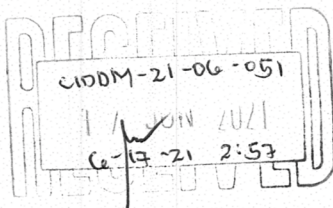 RECEIVED
CIDDM-21-06-051
17 JUN 2021
6-17-21 2:57